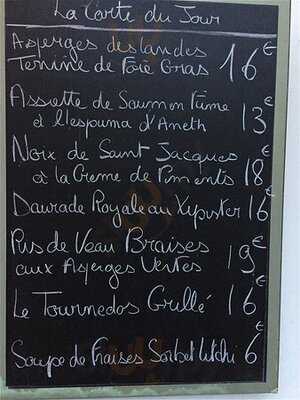 La Carte du Jour
Asperges des landes
Terrine de Foie Gras 16€
Assiette de Saumon Fumé
et l'espuma d'Aneth 13€
Noix de Saint Jacques
à la Crème de Piments 18€
Daurade Royale au Xipister 16€
Ris de Veau Braises
aux Asperges Vertes 19€
Le Tournedos Grillé 16€
Soupe de fraises Sorbet litchi 6€